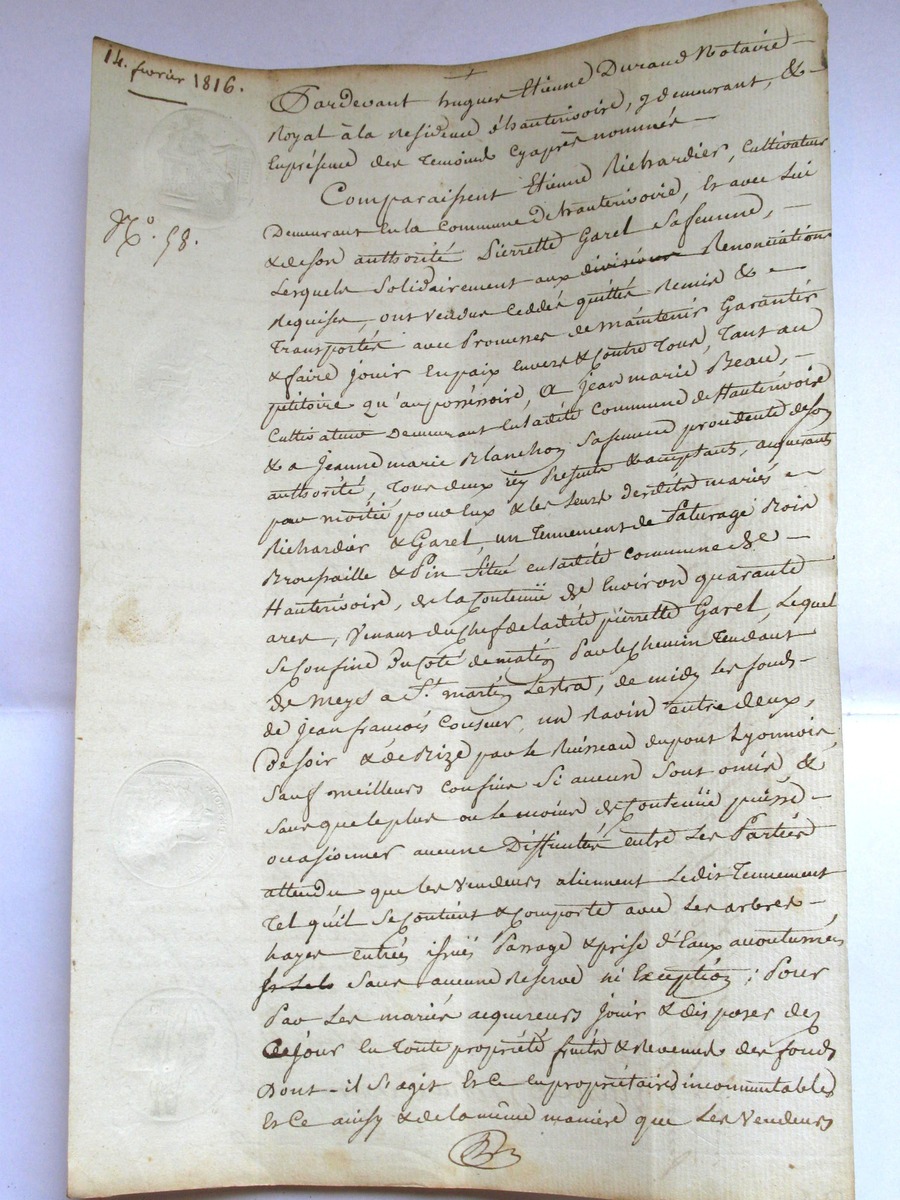 14. fevrier 1816.
N.º 58.
Pardevant hugues Etienne Durand Notaire
Royal à la Residence d'hauterivoire, y demeurant, &
En présence des Temoins cyaprès nommés
Comparaissent Etienne Richardier, Cultivateur
Demeurant En la Commune De hauterivoire, Et avec Lui
& de son authorité Pierrette Garel Safemme,
Lesquels Solidairement aux divisions Renonciations
Requises, ont vendus Ceddés quittés Remis & 
Transportés avec Promesses de maintenir Garantir
& faire jouir En paix Envers & Contre Tous, Tant au
petitoire qu'au possessoire, A Jean marie Beau,
Cultivateur Demeurant En ladite Commune de Hauterivoire
& a Jeanne marie Blanchon Safemme procedente de son
authorité, Tous deux icy Presents & acceptants, acquerants
par moitié pour Eux & les Leurs desdits mariés
Richardier & Garel, un Tennement de Paturage Bois
Broussaille & Pin Situé en ladite Commune de
Hauterivoire, de la Contenüe de Environ quarante
ares, Venant du Chef de ladite pierrette Garel, Lequel
Se Confine Du Coté de matin Par le Chemin Tendant
de Meys a St. martin Lestra, de midy les fonds
de Jean francois Cousner, un Ravin entre deux,
De soir & de Bize par le Ruisseau du pont Lyonnois
Sauf meilleurs Confins Si aucuns Sont omis, &
Sans que le plus ou le moins de Contenüe puisse
occasionner aucune Difficultés entre Les Parties
attendu que les vendeurs aliennent Ledit Tennement
Tel quil Se Contient & Comporte avec Les arbres
hayes entrées issües Passage & prise d'Eaux accoutumées
Sans aucune Reserve ni Exception; Pour
Par Les mariés acquereurs jouir & disposer dez
Ce jour En Toute propriété fruits & Revenus des fonds
Dont il S'agit Est Ce En propriétaires incommutables
Est Ce ainsy & de la même maniere que Les Vendeurs